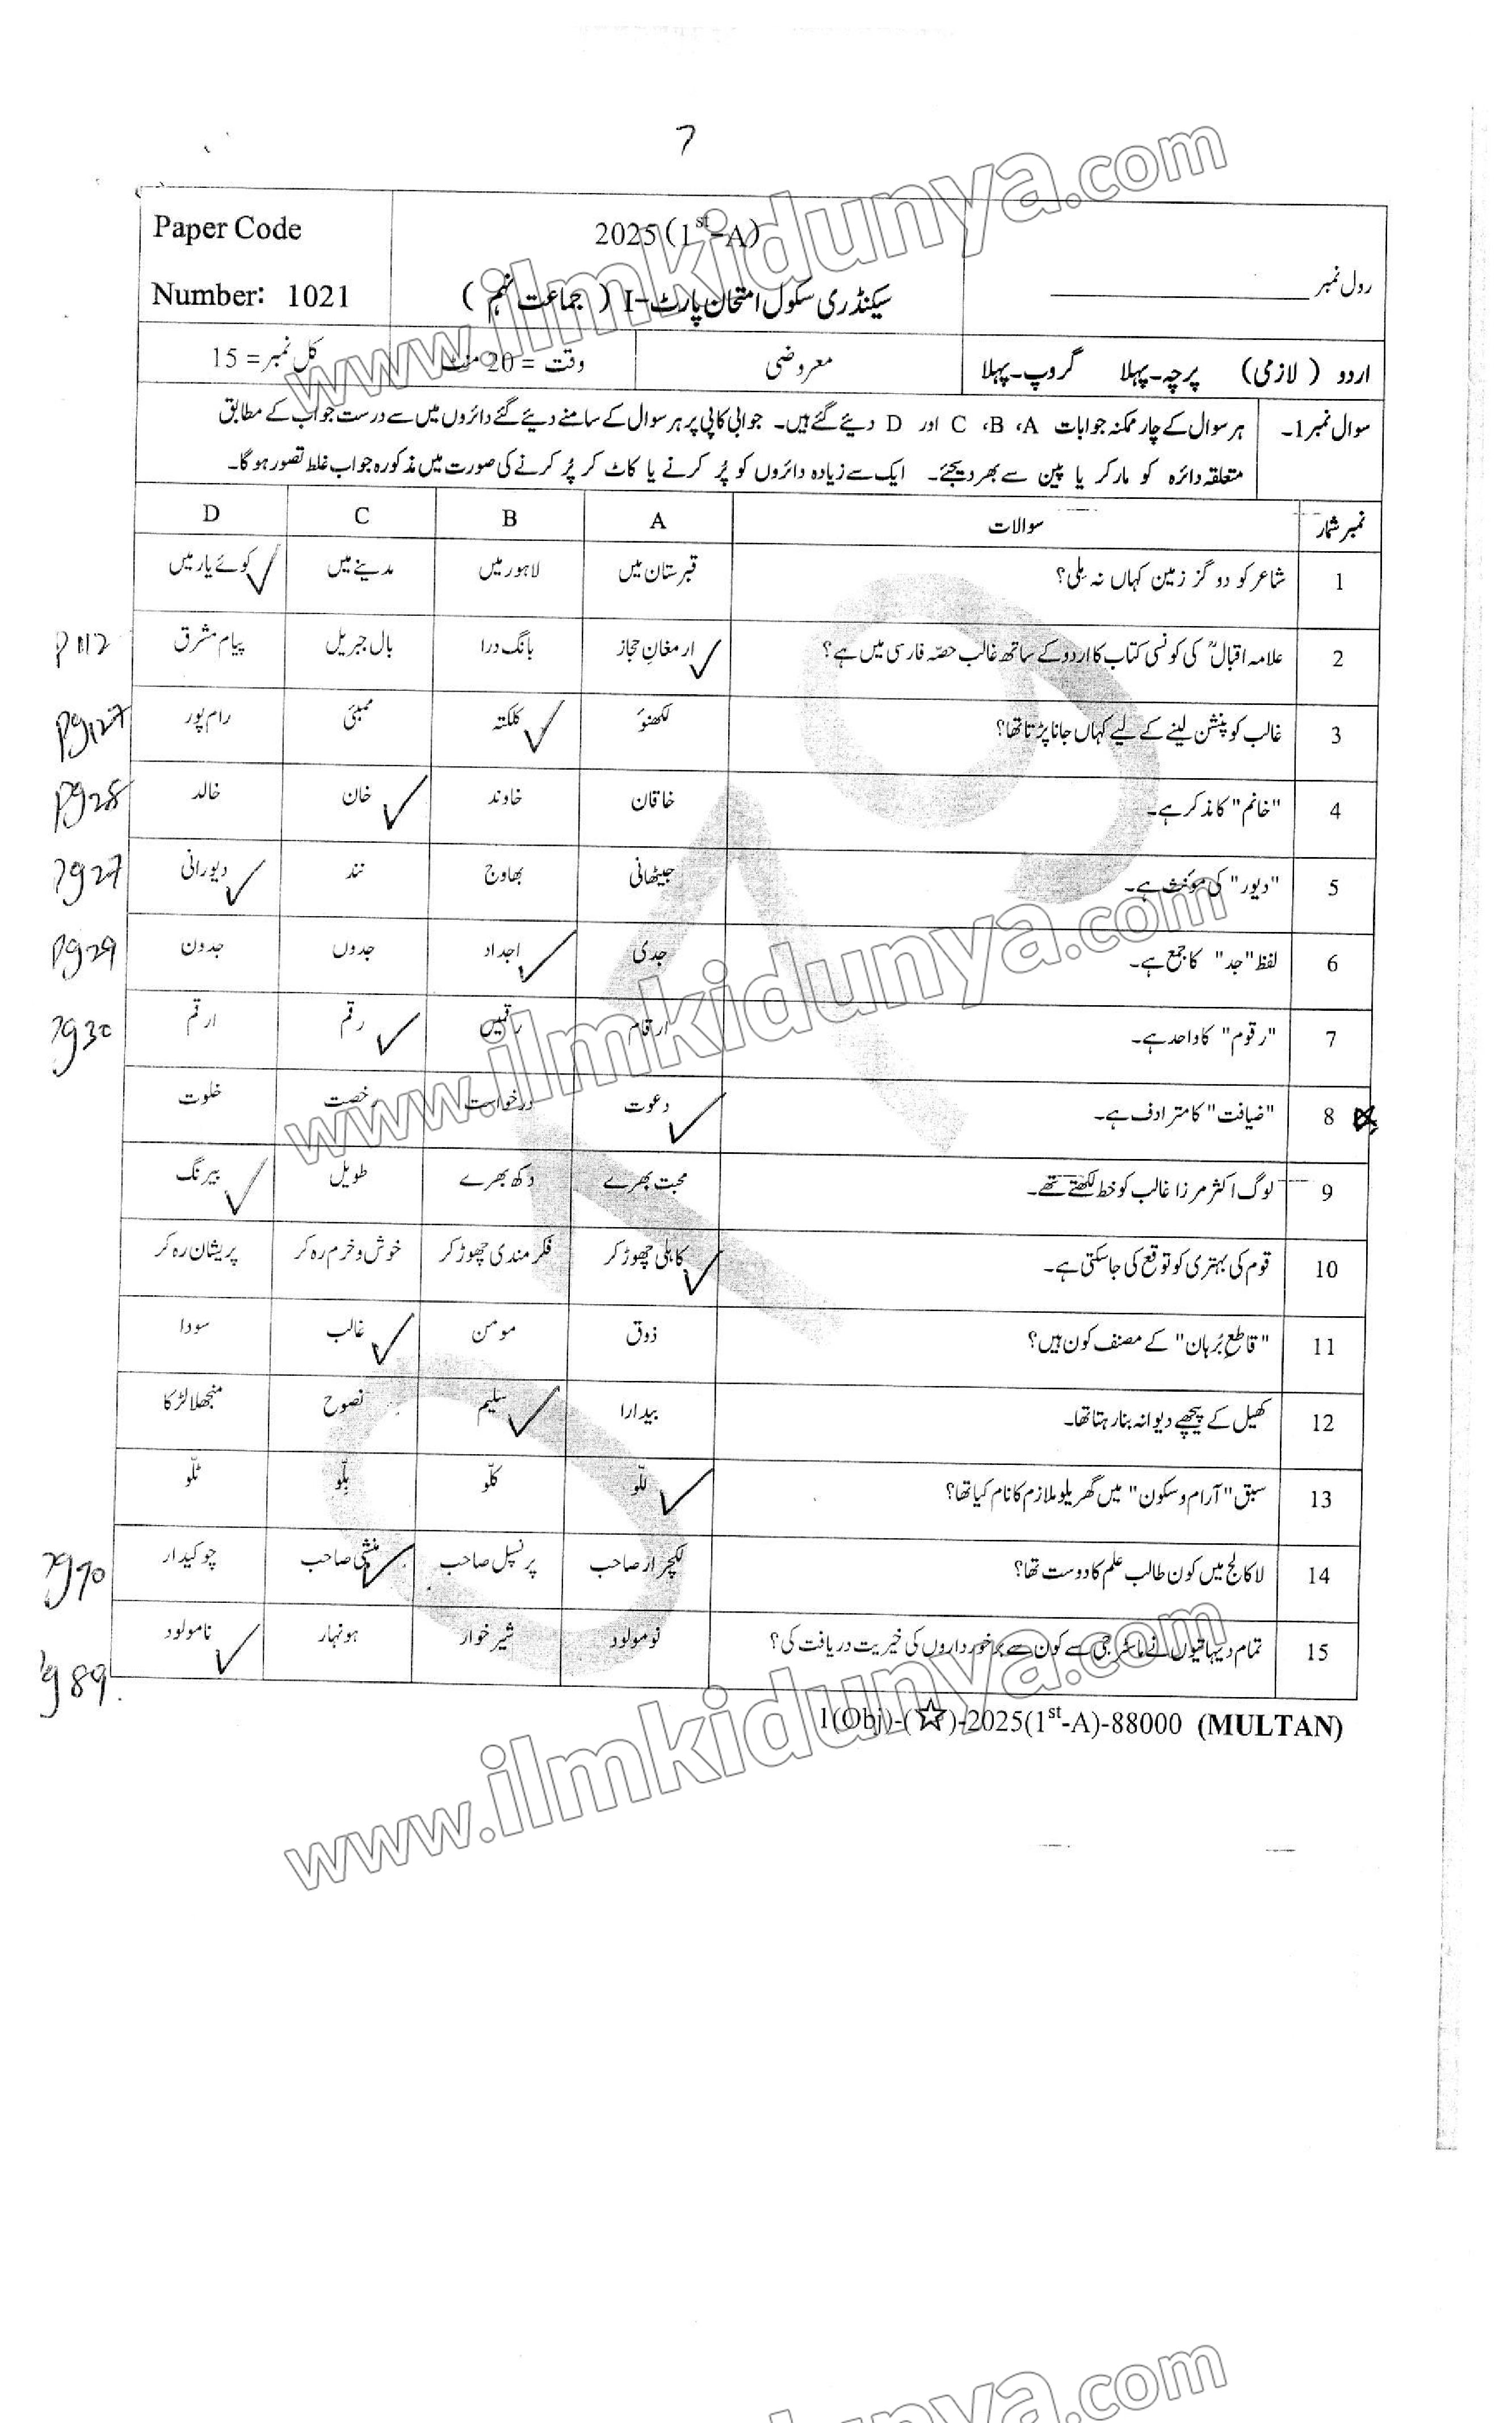 7
Paper Code
Number: 1021
2025 (1st-A)
سیکنڈری سکول امتحان پارٹ-I ( جماعت نہم )
رول نمبر
اردو ( لازمی) پرچہ۔پہلا گروپ۔پہلا
معروضی
وقت = 20 منٹ
کل نمبر = 15
سوال نمبر 1۔ ہر سوال کے چار ممکنہ جوابات A، B، C اور D دیئے گئے ہیں۔ جوابی کاپی پر ہر سوال کے سامنے دیئے گئے دائروں میں سے درست جواب کے مطابق
متعلقہ دائرہ کو مارکر یا پین سے بھر دیجئے۔ ایک سے زیادہ دائروں کو پُر کرنے یا کاٹ کر پُر کرنے کی صورت میں مذکورہ جواب غلط تصور ہوگا۔
نمبر شمار سوالات A B C D
1 شاعر کو دو گز زمین کہاں نہ ملی؟ قبرستان میں لاہور میں مدینے میں کوئے یار میں
2 علامہ اقبالؒ کی کونسی کتاب کا اردو کے ساتھ غالب حصّہ فارسی میں ہے؟ ارمغانِ حجاز بانگ درا بال جبریل پیام مشرق P 112
3 غالب کو پنشن لینے کے لیے کہاں جانا پڑتا تھا؟ لکھنوٗ کلکتہ ممبئی رام پور Pg127
4 "خانم" کا مذکر ہے۔ خاقان خاوند خان خالد Pg28
5 "دیور" کی مؤنث ہے۔ جیٹھانی بھاوج نند دیورانی Pg27
6 لفظ "جد" کا جمع ہے۔ جدی اجداد جدوں جدون Pg29
7 "رقوم" کا واحد ہے۔ ارقام رقمیں رقم ارقم Pg30
8 "ضیافت" کا مترادف ہے۔ دعوت درخواست رخصت خلوت
9 لوگ اکثر مرزا غالب کو خط لکھتے تھے۔ محبت بھرے دکھ بھرے طویل بیرنگ
10 قوم کی بہتری کو توقع کی جا سکتی ہے۔ کاہلی چھوڑ کر فکر مندی چھوڑ کر خوش و خرم رہ کر پریشان رہ کر
11 "قاطع بُرہان" کے مصنف کون ہیں؟ ذوق مومن غالب سودا
12 کھیل کے پیچھے دیوانہ بنا رہتا تھا۔ بیدارا سلیم نصوح منجھلا لڑکا
13 سبق "آرام و سکون" میں گھریلو ملازم کا نام کیا تھا؟ للّو کلّو بلّو ٹلّو
14 لا کالج میں کون طالب علم کا دوست تھا؟ لکچرار صاحب پرنسپل صاحب منشی صاحب چوکیدار Pg90
15 تمام دیہاتیوں نے ماسٹر جی سے کون سے برخورداروں کی خیریت دریافت کی؟ نومولود شیر خوار ہونہار نامولود Pg89.
1(Obj)-(☆)-2025(1st-A)-88000 (MULTAN)
www.ilmkidunya.com
www.ilmkidunya.com
www.ilmkidunya.com